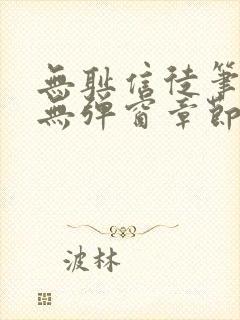 無耻信徒筆
無彈窗章節
波林